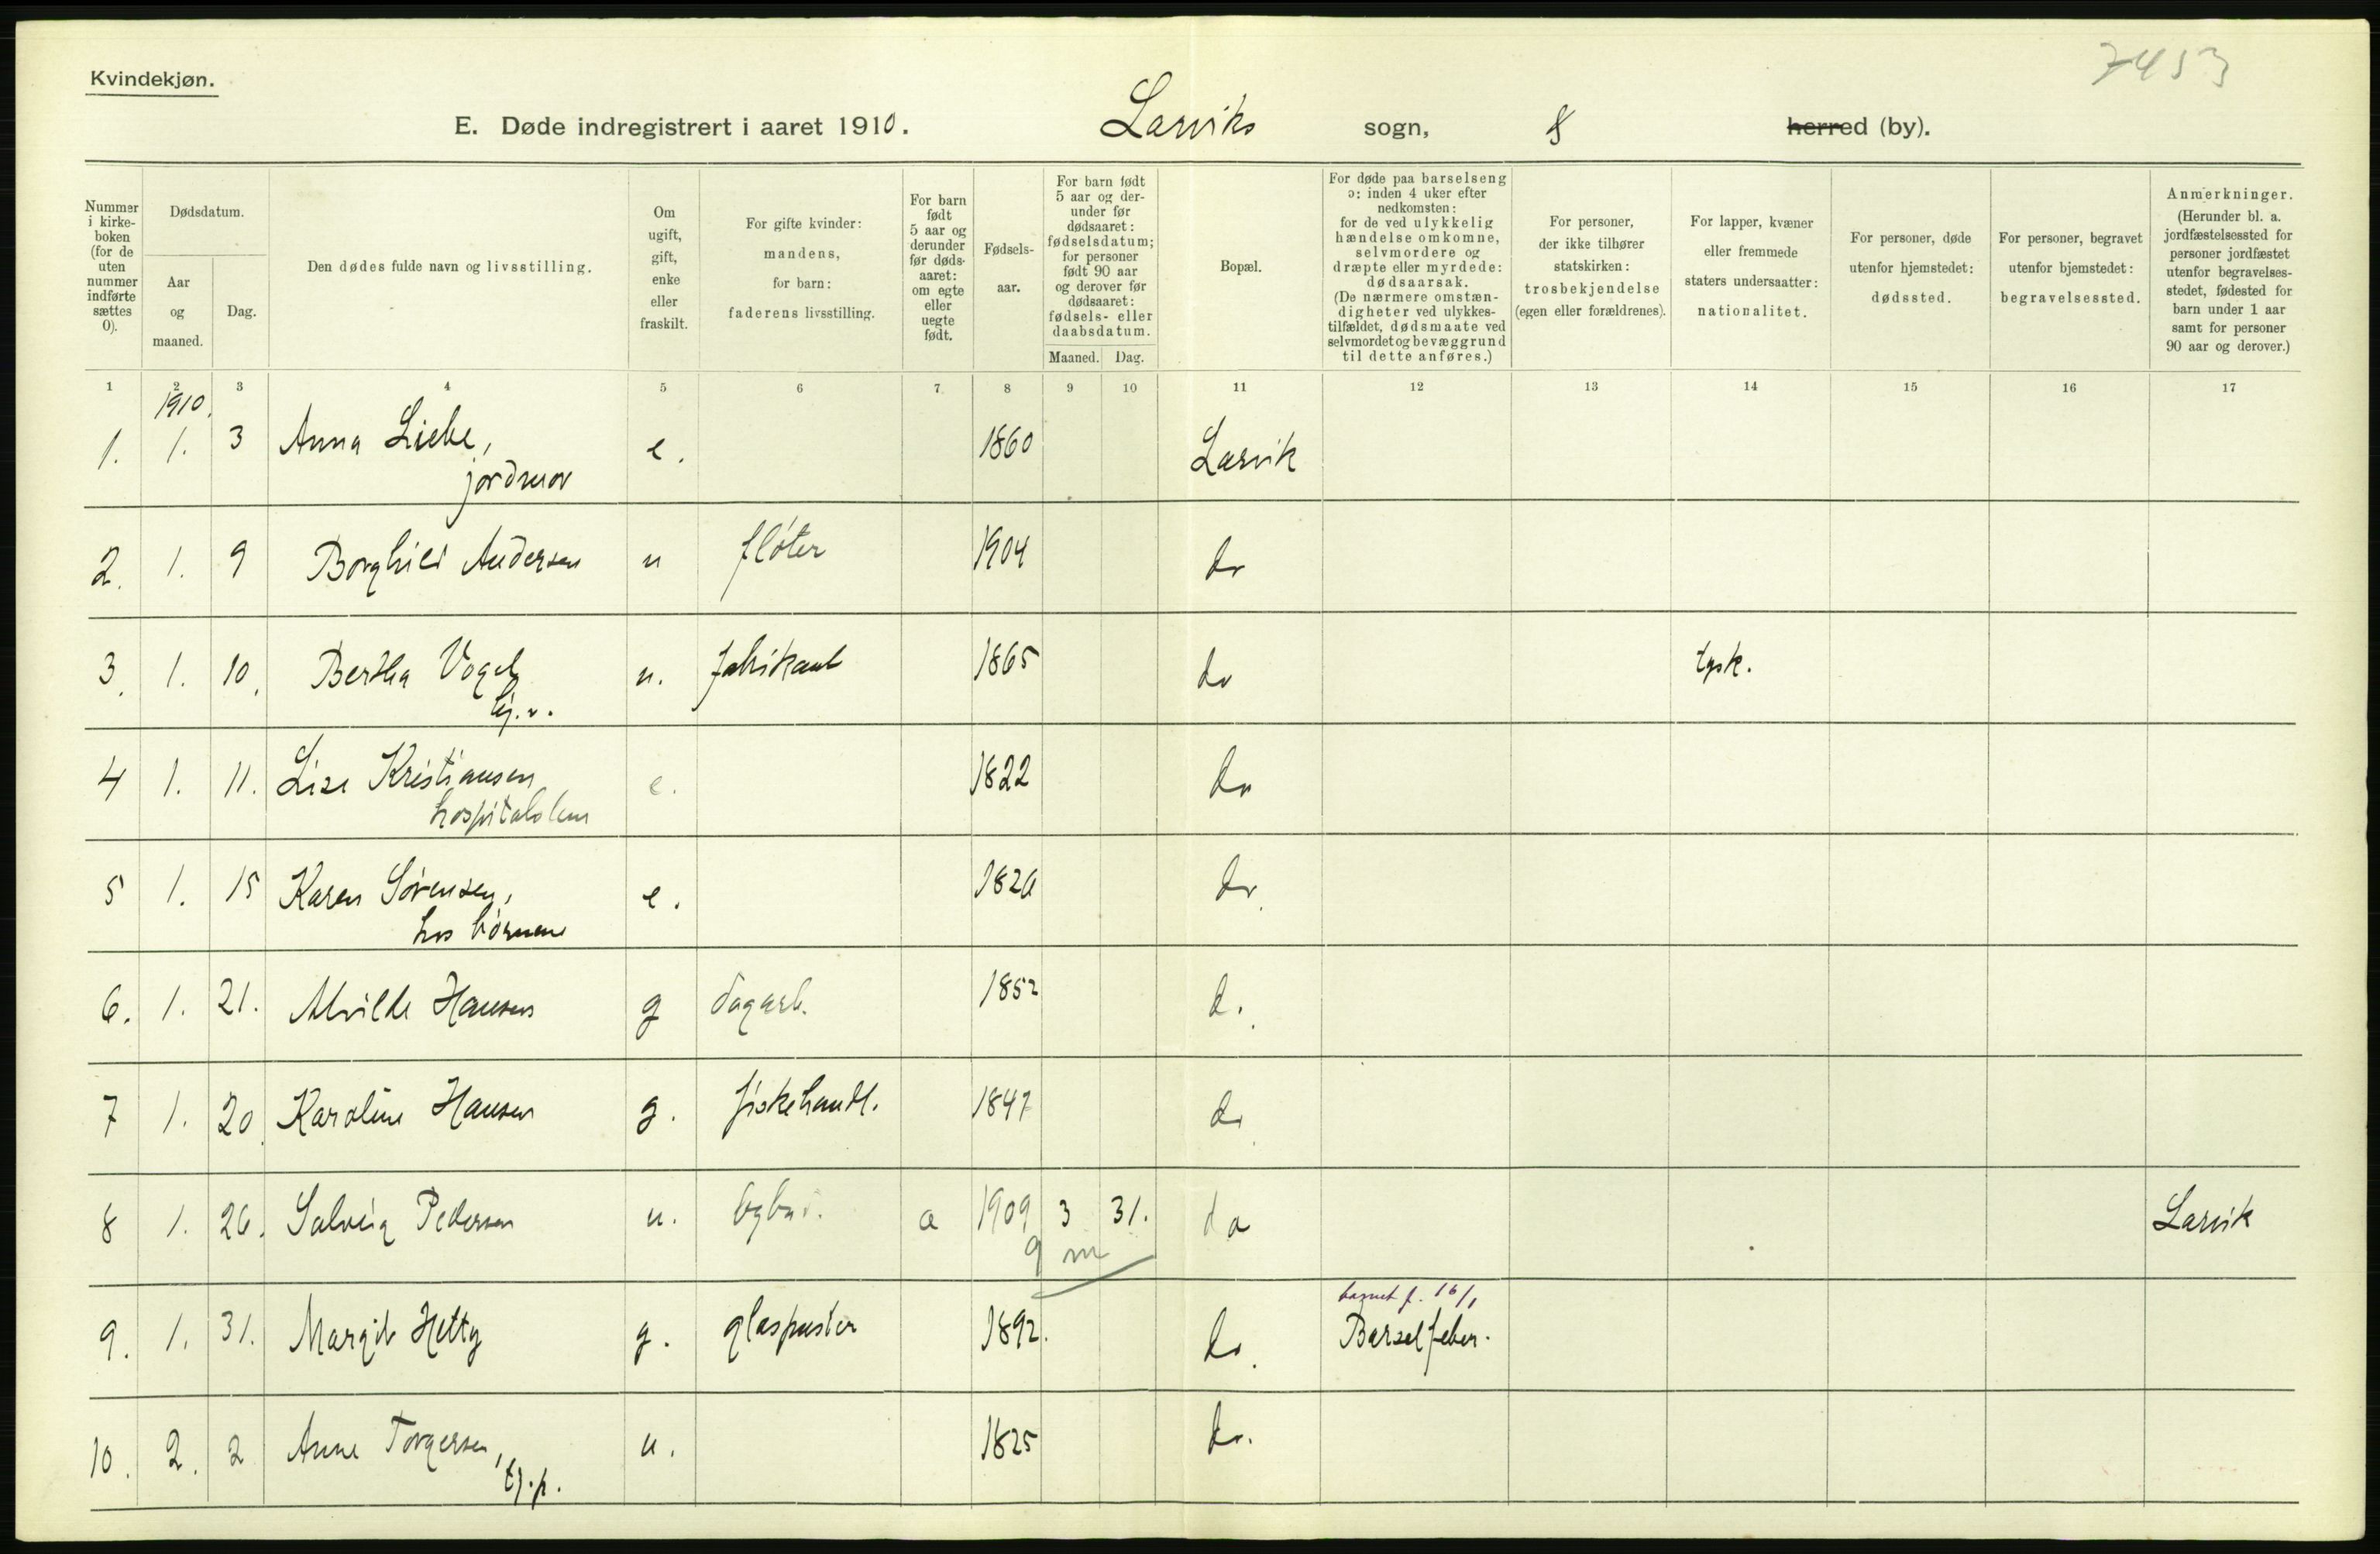 7453
Kvindekjøn.
E. Døde indregistrert i aaret 1910. Larviks sogn, herred (by).
Nummer i kirke-boken (for de uten nummer indførte sættes 0).
Dødsdatum.
Aar og maaned.
Dag.
Den dødes fulde navn og livsstilling.
Om ugift, gift, enke eller fraskilt.
For gifte kvinder: mandens, for barn: faderens livsstilling.
For barn født 5 aar og derunder før døds-aaret: om egte eller uegte født.
Fødsels-aar.
For barn født 5 aar og der-under før dødsaaret: fødselsdatum; for personer født 90 aar og derover før dødsaaret: fødsels- eller daabsdatum.
Maaned. Dag.
Bopæl.
For døde paa barselseng ɔ: inden 4 uker efter nedkomsten: for de ved ulykkelig hændelse omkomne, selvmordere og dræpte eller myrdede: dødsaarsak. (De nærmere omstæn-digheter ved ulykkes-tilfældet, dødsmaate ved selvmordet og bevæggrund til dette anføres.)
For personer, der ikke tilhører statskirken: trosbekjendelse (egen eller forældrenes).
For lapper, kvæner eller fremmede staters undersaatter: nationalitet.
For personer, døde utenfor hjemstedet: dødssted.
For personer, begravet utenfor hjemstedet: begravelsessted.
Anmerkninger. (Herunder bl. a. jordfæstelsessted for personer jordfæstet utenfor begravelses-stedet, fødested for barn under 1 aar samt for personer 90 aar og derover.)
1 2 3 4 5 6 7 8 9 10 11 12 13 14 15 16 17
1910.
1. 1. 3 Anna Liebe, e. 1860 Larvik
jordmor
2. 1. 9 Borghild Andersen u fløter 1904 do
3. 1. 10. Bertha Vogel u. fabrikant 1865 do tysk.
4 1. 11. Lise Kristiansen e. 1822 do
hospitalslem
5 1. 15 Karen Sørensen, e. 1826 do
hos børnene
6. 1. 21. Alvilde Hansen g dagarb. 1852 d.
7 1. 20. Karoline Hansen g. fiskehandl. 1847 do
8 1. 26. Solveig Pedersen u. bybud. a 1909 3 31. do Larvik
9 m
barnet f. 16/1
9. 1. 31. Margit Hetty g. glaspuster 1892. do. Barselfeber.
10. 2. 2 Anne Torgersen, u. 1825 do.
tj.p.